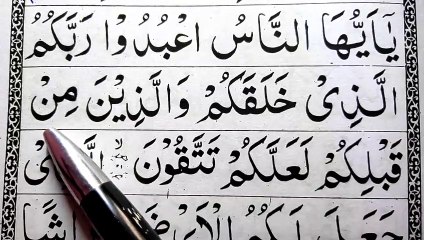 يٰۤاَيُّهَا النَّاسُ اعْبُدُوْا رَبَّكُمُ
الَّذِىْ خَلَقَكُمْ وَالَّذِيْنَ مِنْ
قَبْلِكُمْ لَعَلَّكُمْ تَتَّقُوْنَ
جَعَلَ لَكُمُ